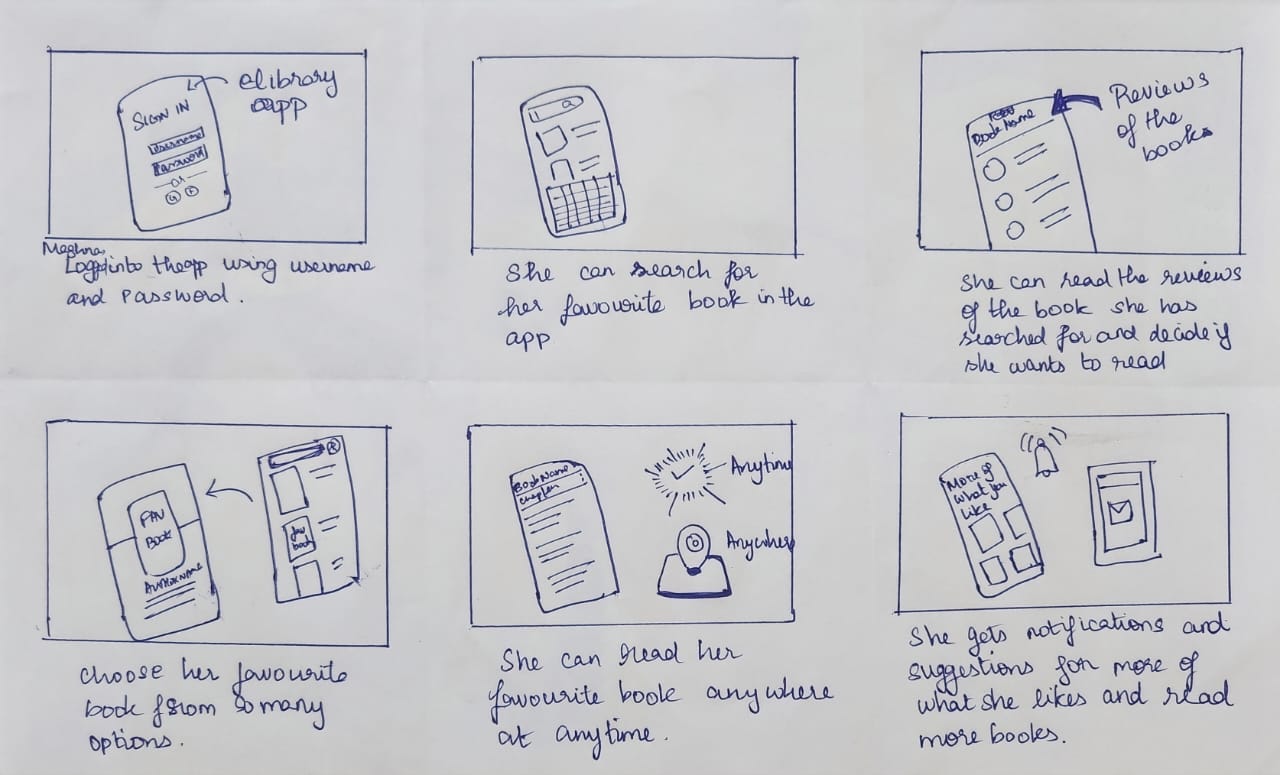 elibrary
app
SIGN IN
Username
Password
OR
Meghna
Logged into the app using username
and password.
She can search for
her favourite book in the
app
Book Name
Reviews
of the
books
She can read the reviews
of the book she has
searched for and decide if
she wants to read
FAV
BOOK
AUTHOR NAME
fav
book
choose her favourite
book from so many
options.
Book Name
Chapter
Anytime
Anywhere
She can read her
favourite book anywhere
at anytime.
More of
what you
like
She gets notifications and
suggestions for more of
what she likes and read
more books.